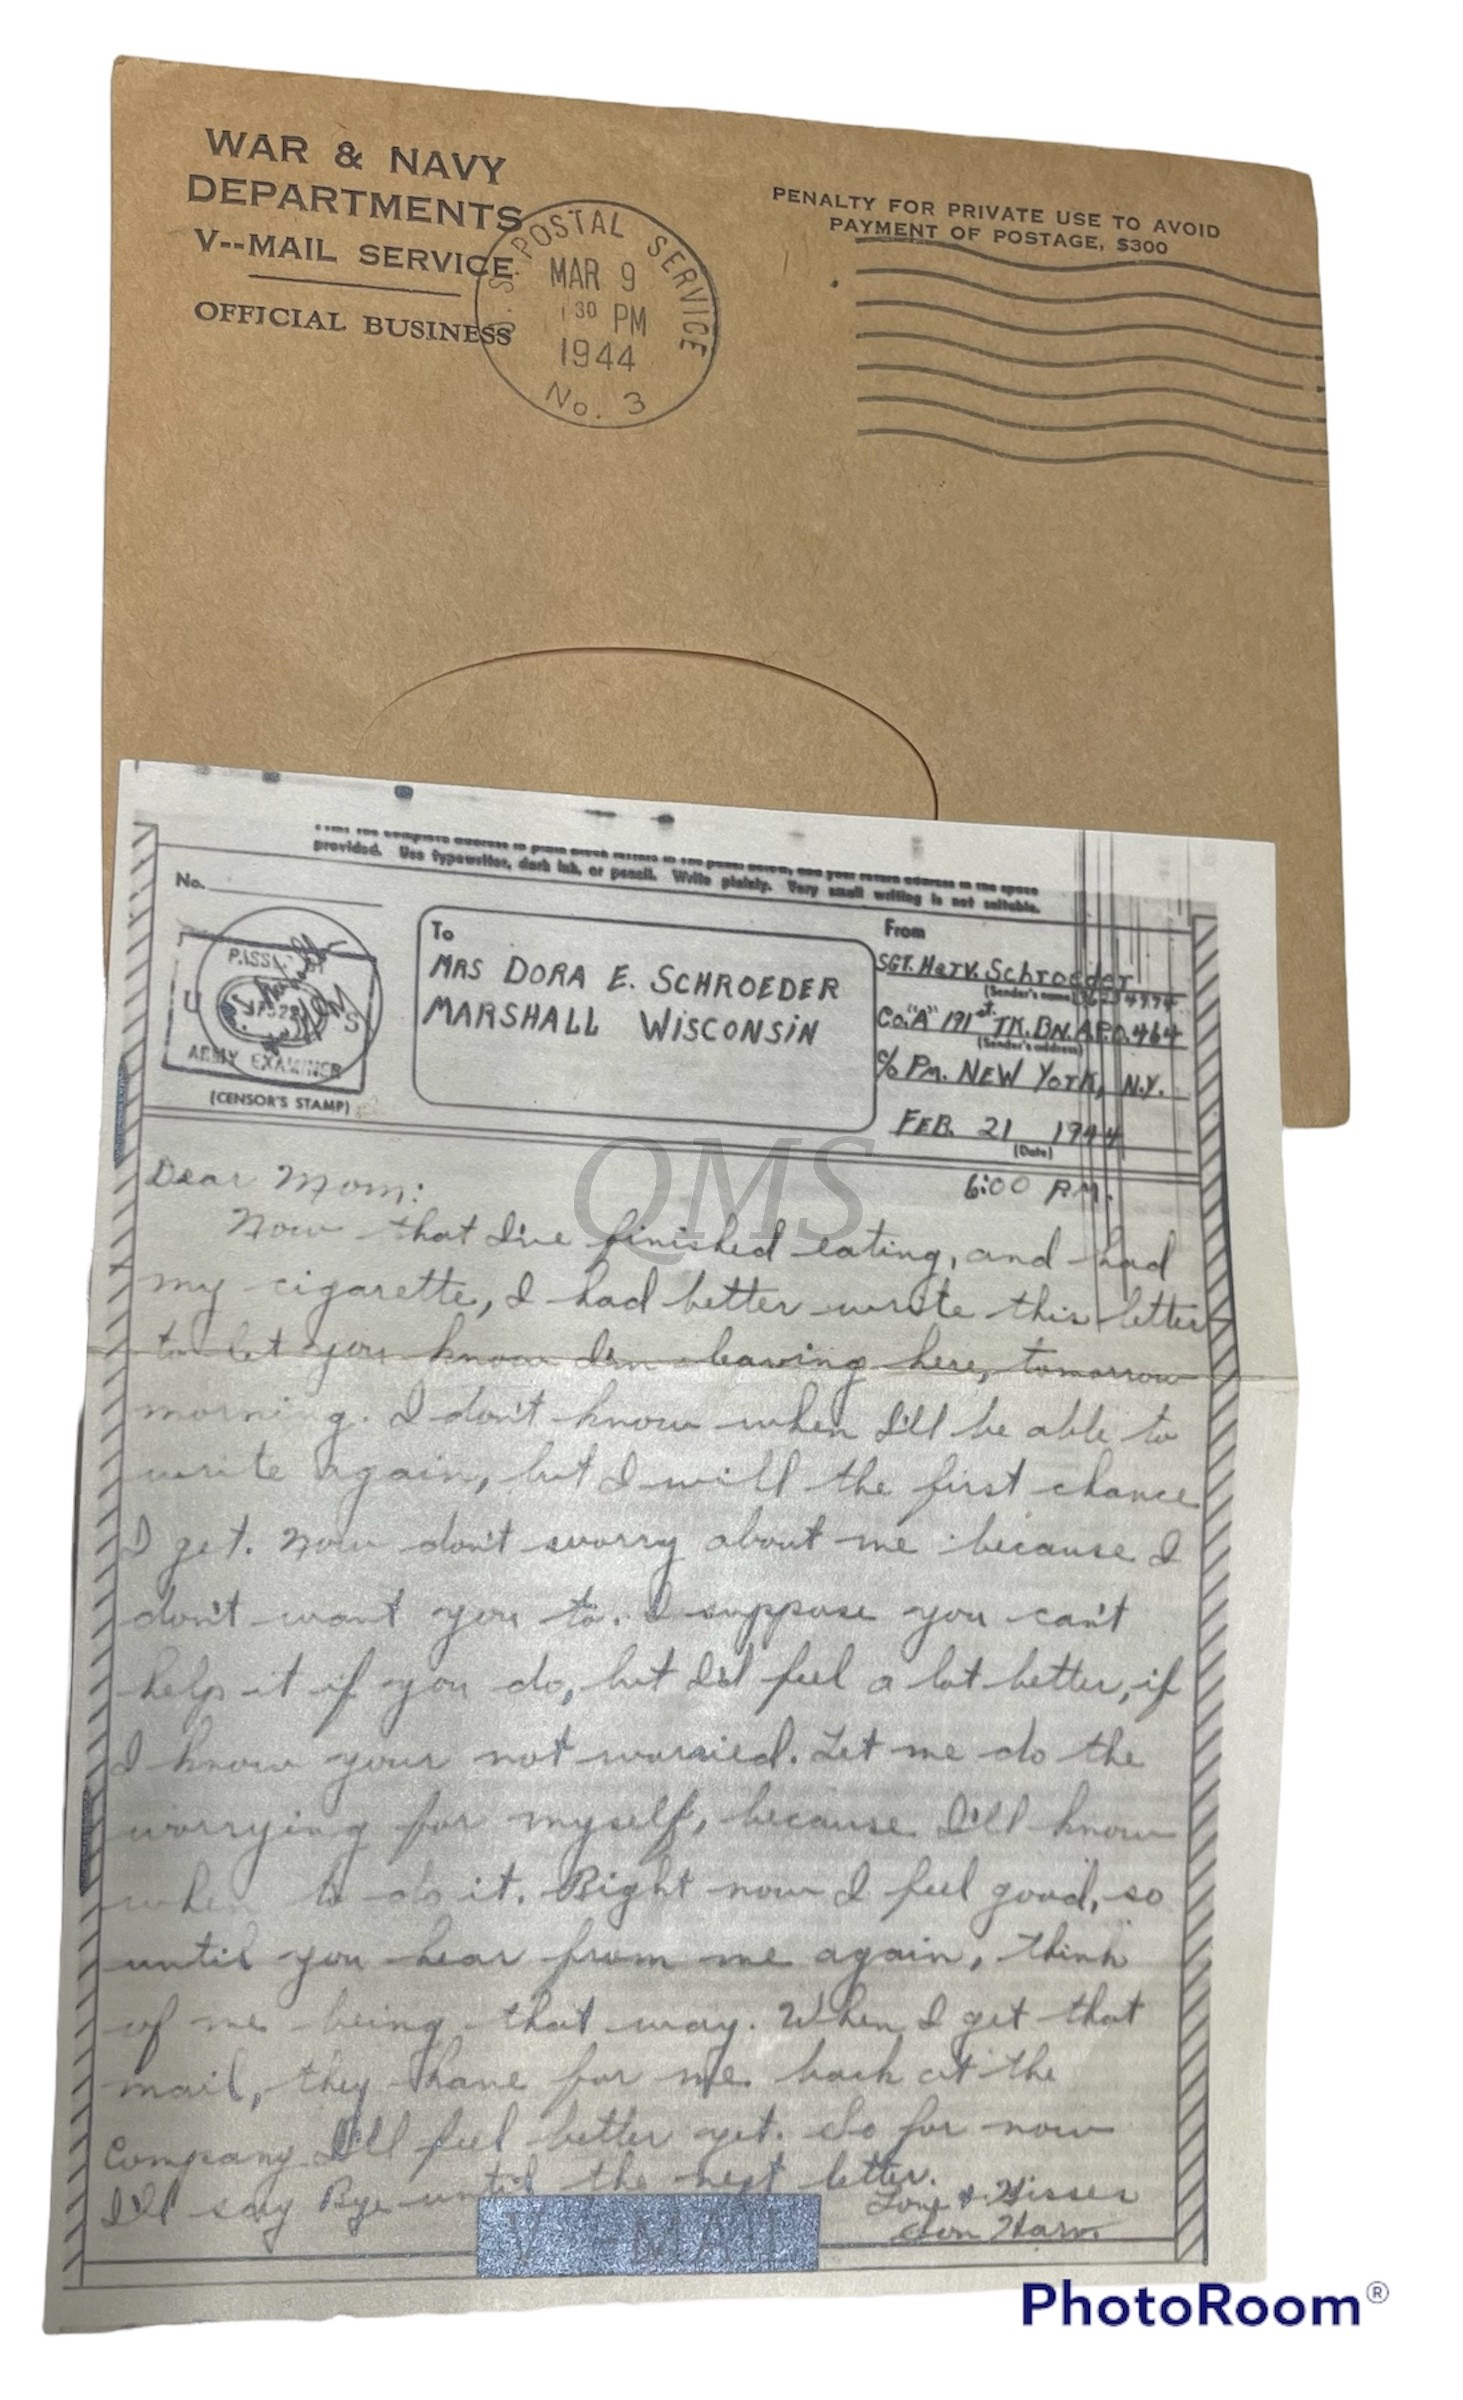 WAR & NAVY
DEPARTMENTS
V--MAIL SERVICE
OFFICIAL BUSINESS
U. S. POSTAL SERVICE
MAR 9
1 30 PM
1944
No. 3
PENALTY FOR PRIVATE USE TO AVOID
PAYMENT OF POSTAGE, $300
provided. Use typewriter, dark ink, or pencil. Write plainly. Very small writing is not suitable.
No.
PASSED BY
U S
ARMY EXAMINER
(CENSOR'S STAMP)
To
MRS DORA E. SCHROEDER
MARSHALL WISCONSIN
From
SGT. Harv. Schroeder
(Sender's name)
Co. "A" 191st TK. BN. A.P.O. 464
(Sender's address)
c/o Pm. NEW YORK, N.Y.
FEB. 21 1944
(Date)
6:00 P.M.
Dear Mom:
Now that I've finished eating, and had
my cigarette, I had better write this letter
to let you know I'm leaving here, tomorrow
morning. I don't know when I'll be able to
write again, but I will the first chance
I get. Now don't worry about me because I
don't want you to. I suppose you can't
help it if you do, but I'd feel a lot better, if
I know your not worried. Let me do the
worrying for myself, because I'll know
when to do it. Right now I feel good, so
until you hear from me again, think
of me being that way. When I get that
mail, they have for me back at the
Company I'll feel better yet. So for now
I'll say Bye until the next letter.
Love & Kisses
Son Harv.
V-MAIL
QMS
PhotoRoom®